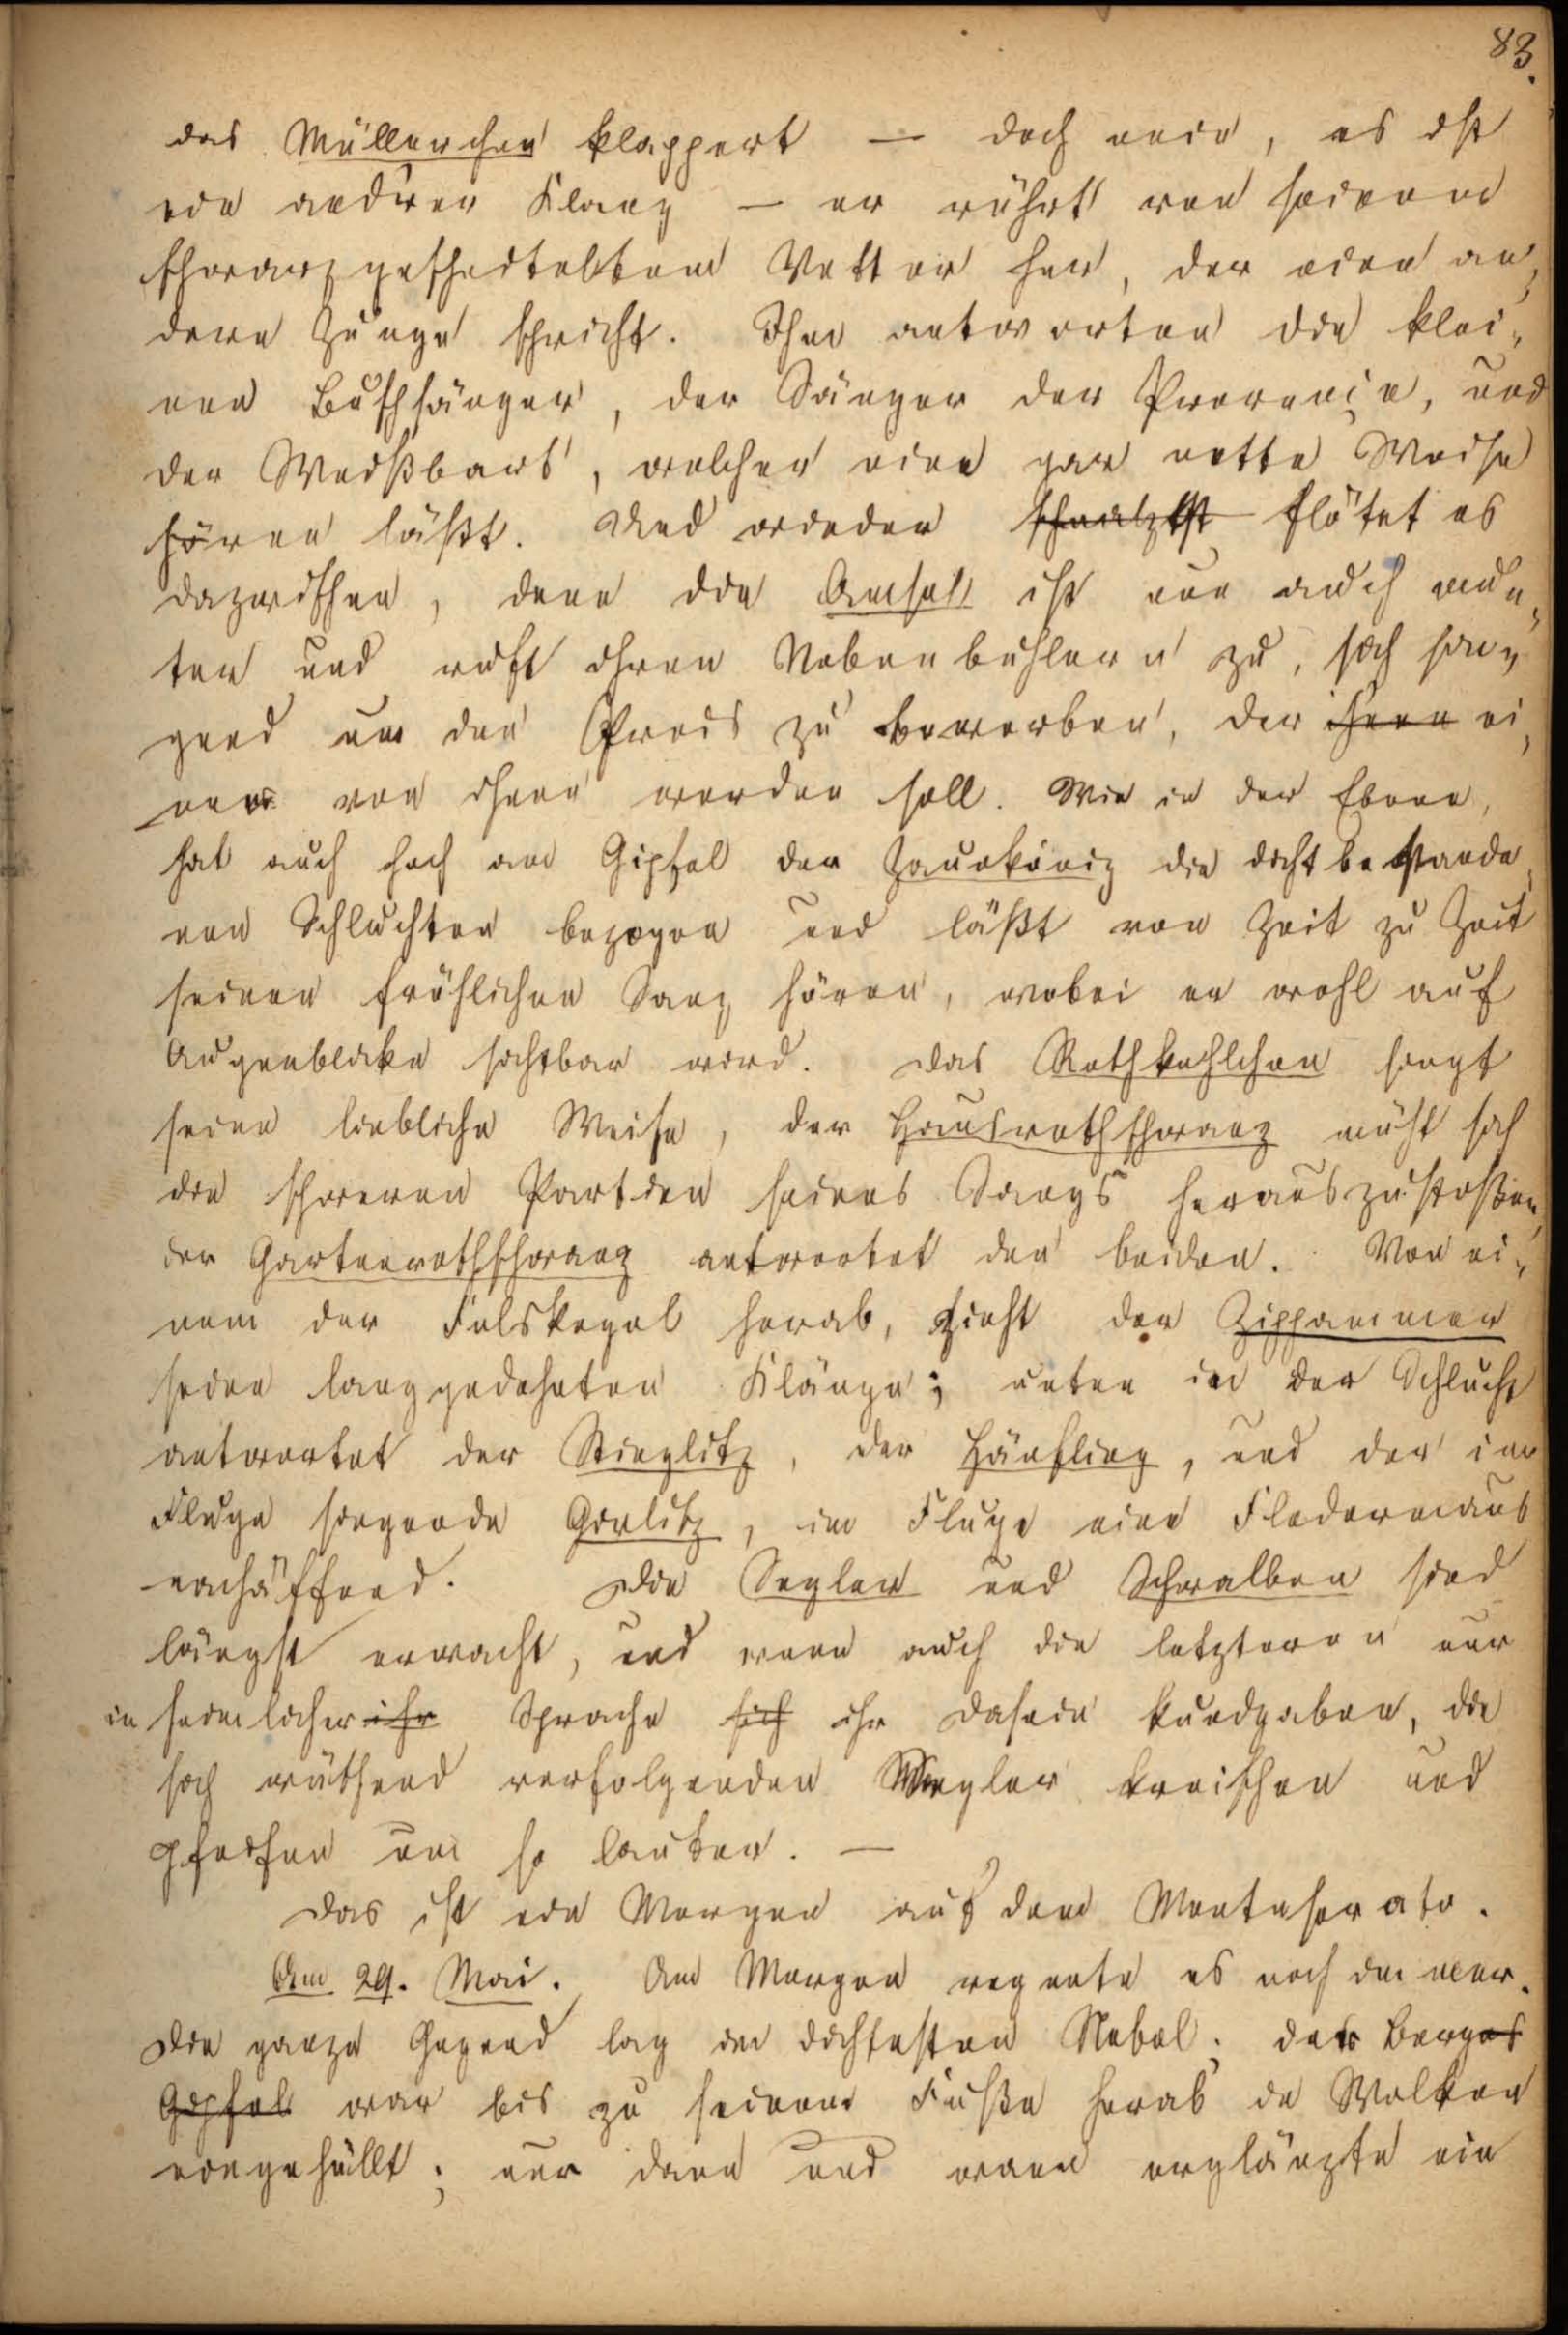 83.
das Müllerchen klappert — doch nein, es ist
ein andrer Klang — er rührt von seinem
schwarzgescheitelten Vetter her, der eine an„
dere Zunge spricht. Ihm antworten die klei„
nen Buschsänger, der Sänger der Provence, und
der Weißbart, welcher eine gar nette Weise
hören läßt. Und wieder flötet es
dazwischen, denn die Amsel ist nun auch mun„
ter und ruft ihren Nebenbuhlern zu, sich sin„
gend um den Preis zu bewerben, der ihnen ei„
ner von ihnen werden soll. Wie in der Ebene,
hat auch hoch am Gipfel der Zaunkönig die dicht bestande„
nen Schluchten bezogen und läßt von Zeit zu Zeit
seinen fröhlichen Sang hören, wobei er wohl auf
Augenblicke sichtbar wird. Das Rothkehlchen singt
seine liebliche Weise, der Hausrothschwanz müht sich
die schweren Partien seines Sangs herauszustoßen,
der Gartenrothschwanz antwortet den beiden. Von ei„
nem der Felskegel herab, zieht der Zippammer
seine langgedehnten Klänge; unten in der Schlucht
antwortet der Stieglitz, der Hänfling, und der im
Fluge singende Girlitz, im Fluge eine Fledermaus
nachäffend. Die Segler und Schwalben sind
längst erwacht, und wenn auch die letzteren nur
in heimlicher ihr Sprache sich ihr Dasein kundgaben, die
sich wüthend verfolgenden Segler kreischen und
pfeifen um so lauter. —
Das ist ein Morgen auf dem Monteserato.
Am 29. Mai. Am Morgen regnete es noch immer.
Die ganze Gegend lag im dichtesten Nebel; der Berges
Gipfel war bis zu seinem Fuße herab in Wolken
eingehüllt; nur dann und wann erglänzte ein